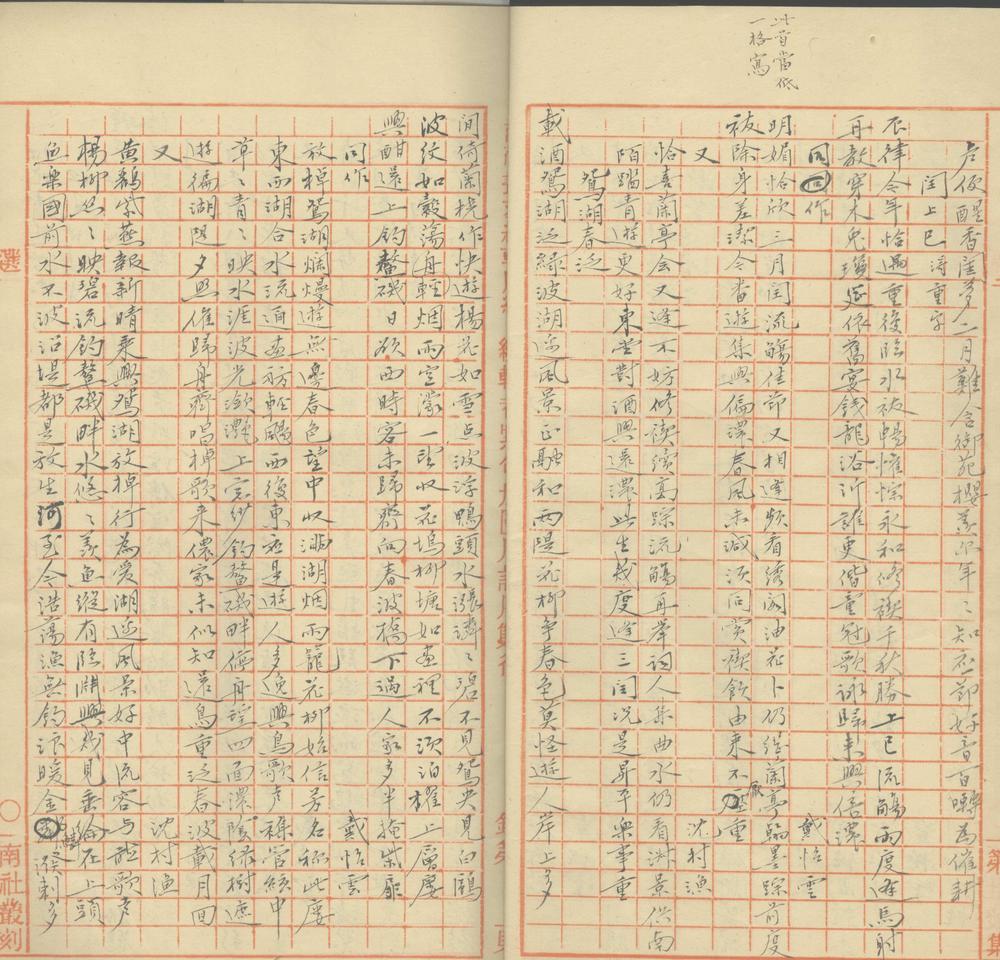 此首當低
一格寫
戶復醒香閨夢二月難含御苑櫻羨爾年〻知不節好音百囀為催耕
閏上巳 得重字
不律今年恰遇重後臨水祓暢懷悰永和修禊千秋勝上巳流觴兩度逢馬射
再教穿木兔瓊筵依舊宴錢龍浴沂誰更偕童冠歌詠歸來興倍濃
同作 戴怡雲
明媚恰欣三月閏流觴佳節又相逢頻看綉閣油花卜仍繼蘭亭翰墨踪前度
祓除身差潔今番遊集興偏濃春風未減須同賞禊飲由來不厭重
又 沈村漁
恰喜蘭亭会又逢不妨修禊續高踪流觴再举詞人集曲水仍看淑景供南
陌踏青遊更好東堂對酒興還濃此生幾度逢三閏况是昇平樂事重
鴛湖春泛
載酒鴛湖泛綠波湖邊風景正融和兩隄花柳争春色莫怪遊人岸上多
閒倚蘭橈作快遊楊花如雪点波浮鴨頭水漲潾〻碧不見鴛央見白鷗
波紋如縠蕩舟輕烟雨空濛一望收花塢柳塘如画裡不須泊櫂上層屢
興酣還上釣鼇磯日欲西時客未歸齊向春波橋下過人家多半掩柴扉
同作 戴怡雲
放棹鴛湖爛熳遊無邊春色望中收满湖烟雨籠花柳始信芳名称此廔
東西湖合水流通画舫輕鷗西復東祗是遊人多逸興鳥歌声雜管絃中
草〻青〻映水涯波光潋灩上窓紗釣鼇磯畔停舟望四面濃陰綠樹遮
遊徧湖隄夕照催歸舟齊唱棹歌来儂家未似知還鳥重泛春波載月回
又 沈村漁
黄鸝紫燕報新晴乘興鴛湖放棹行為爱湖邊風景好中流容与聽歌声
楊柳絲〻映碧流釣鼇磯畔水悠〻羡魚縱有臨淵興幾見垂綸在上頭
魚樂國前水不波沿堤都是放生河至今浩蕩漁無釣汴暖金鱗潑剌多
選
南社叢刻
集